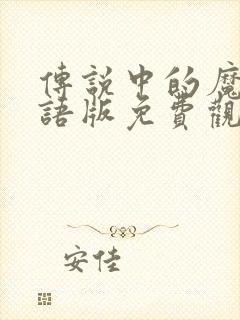 傳說中的魔
語版免費觀
安佳